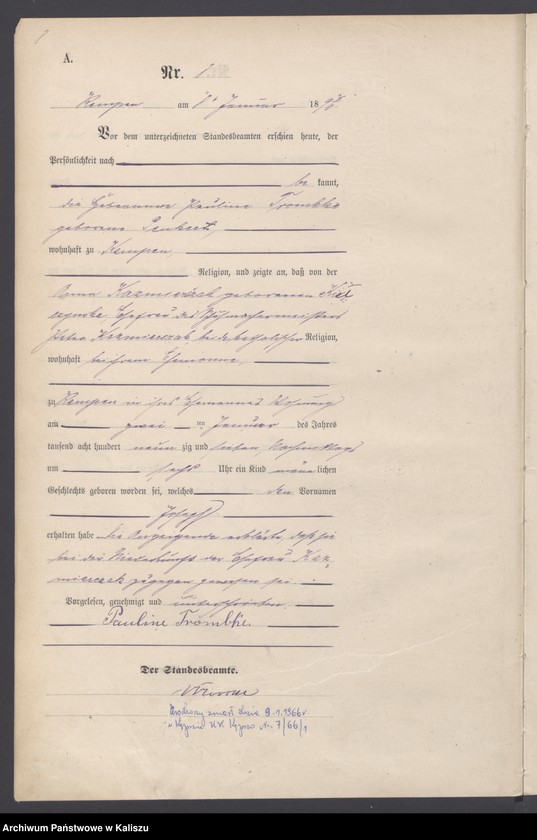 A.
Nr. 1
Kempen am Januar 1897
Vor dem unterzeichneten Standesbeamten erschien heute, der
Persönlichkeit nach
be kannt,
die Hebamme Pauline Trombke
geborene
wohnhaft zu Kempen,
Religion, und zeigte an, daß von der
Anna Kazmierczak geborenen
Ehefrau des Schuhmachermeisters
Kazmierczak, beide katholischer Religion,
wohnhaft bei ihrem Ehemanne,
zu Kempen in ihres Ehemannes Wohnung
am zwei ten Januar des Jahres
tausend acht hundert neun zig und sieben, Nachmittags
um sechs Uhr ein Kind männ lichen
Geschlechts geboren worden sei, welches den Vornamen
Joseph
erhalten habe. Die Anzeigende erklärte, daß sie
bei der Niederkunft der Ehefrau Kaz-
mierczak zugegen gewesen sei.
Vorgelesen, genehmigt und unterschrieben.
Pauline Trombke.
Der Standesbeamte.
zmarł dnia 9.1.1966r
w Kępnie Nr. 7/66/1
Archiwum Państwowe w Kaliszu